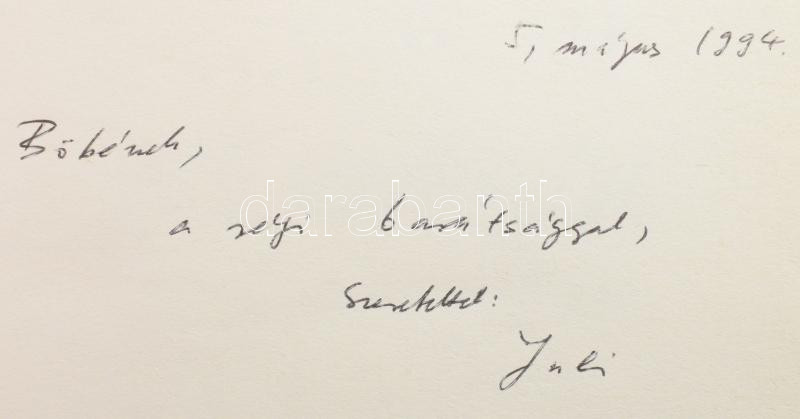 5, május 1994.
Bőbének,
a régi barátsággal,
darabanth
Szeretettel:
Juli